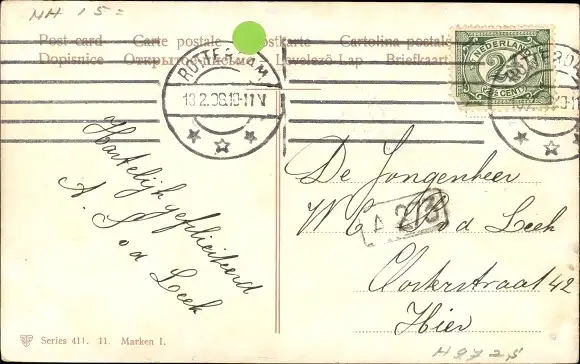 HH 15=
Post card Carte postale Postkarte Cartolina postale
Dopisnice Открытое письмо Levelező-Lap Briefkaart
ROTTERDAM
13.2.08.10-11V
NEDERLAND
2½
2½ CENT
Hartelijk gefeliciteerd
A. S. v d Leek
De Jongenheer
W v d Leek
A 213
Oosterstraat 42
Hier
Series 411. 11. Marken I.